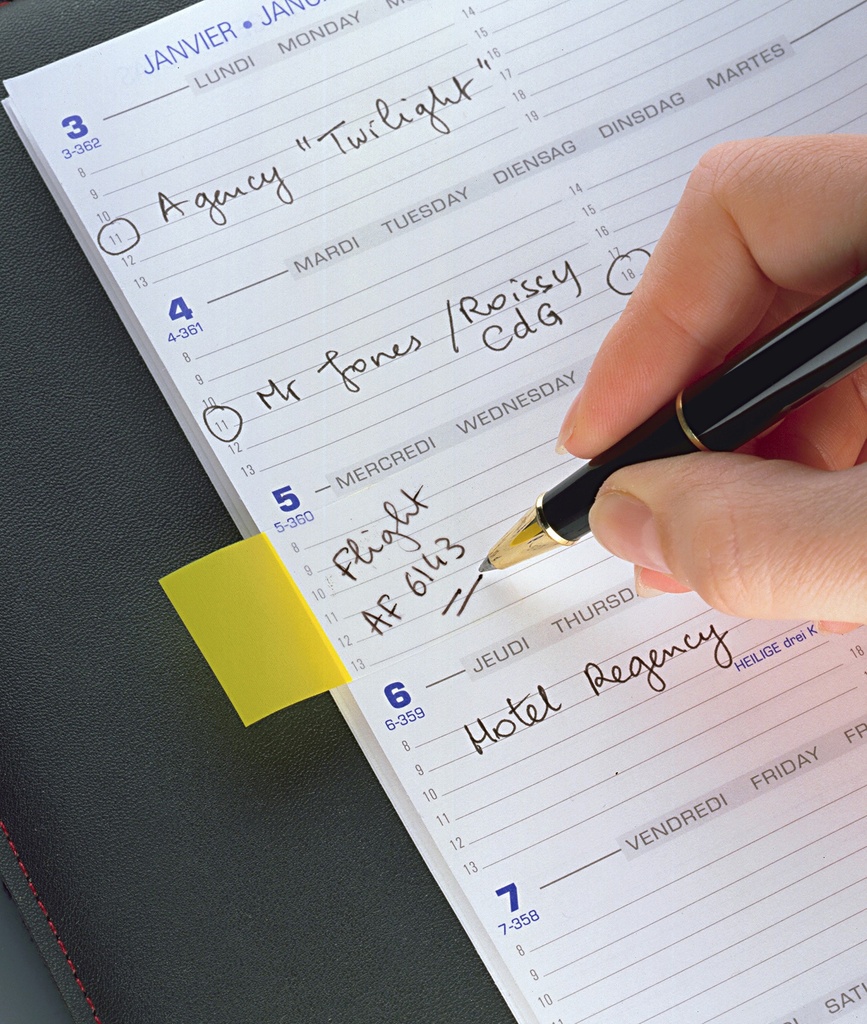 JANVIER •
LUNDI MONDAY
3
3-362
14
15
16
17
18
19
8
9
10
11
12
13
Agency "Twilight"
MARDI TUESDAY DIENSAG DINSDAG MARTES
4
4-361
14
15
16
17
18
8
9
10
11
12
13
Mr Jones / Roissy
CdG
MERCREDI WEDNESDAY
5
5-360
8
9
10
11
12
13
Flight
AF 6143
JEUDI
6
6-359
HEILIGE drei K
18
8
9
10
11
12
13
Hotel Regency
VENDREDI FRIDAY
7
7-358
8
9
10
11